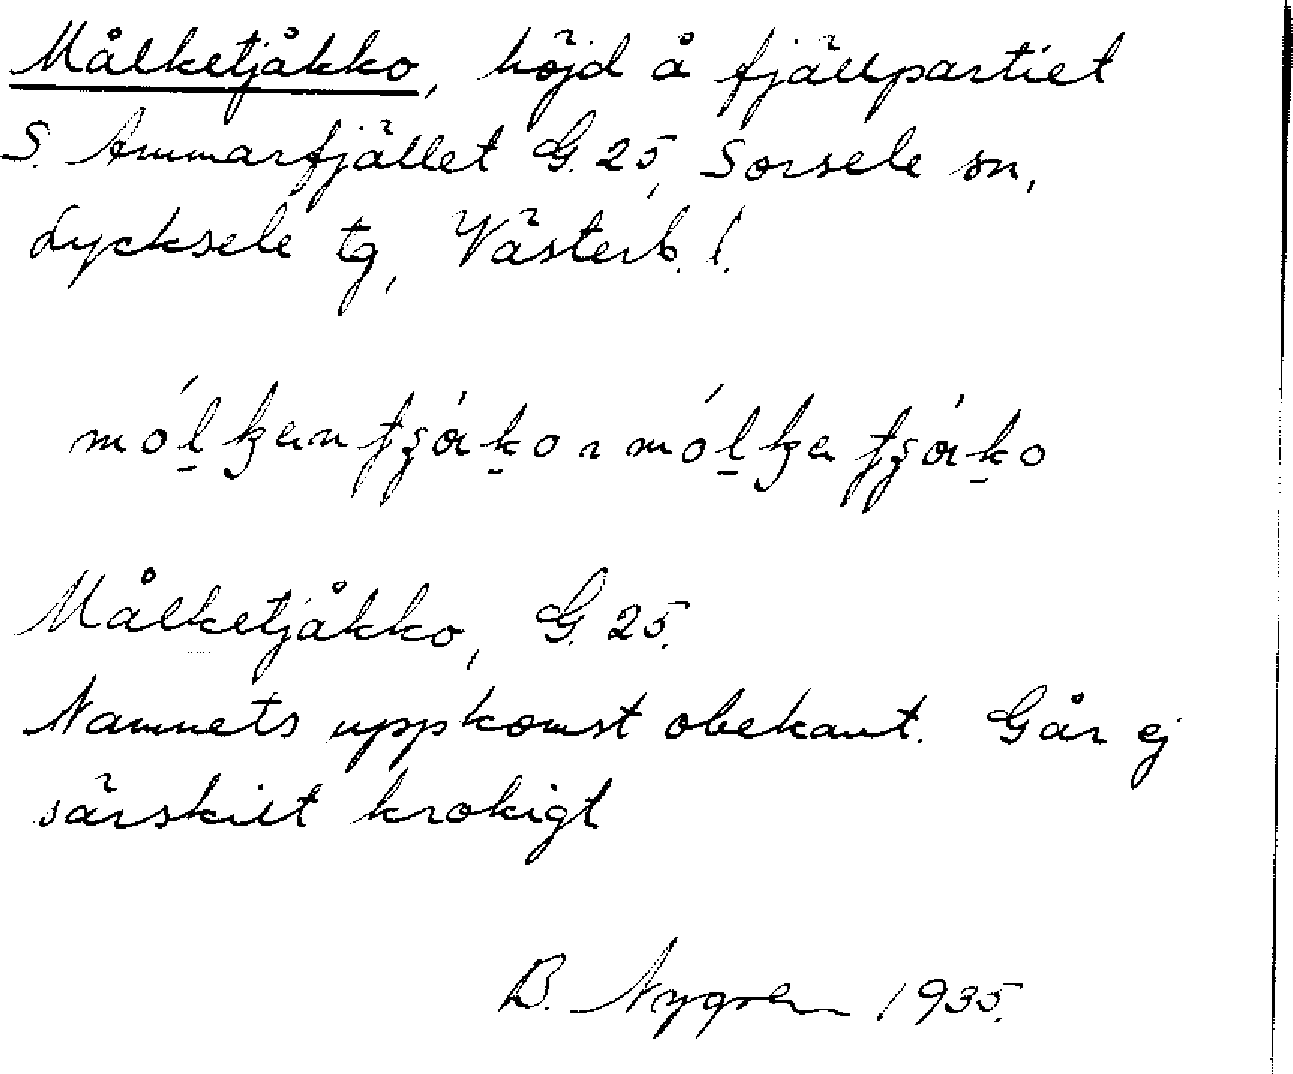 Målketjåkko, höjd å fjällpartiet
S. Ammarfjället G. 25, Sorsele sn,
Lycksele tg, Västerb. l.
Målketjåkko, G. 25.
Namnets uppkomst obekant. Går ej
särskilt krokigt
B. Nygren 1935.